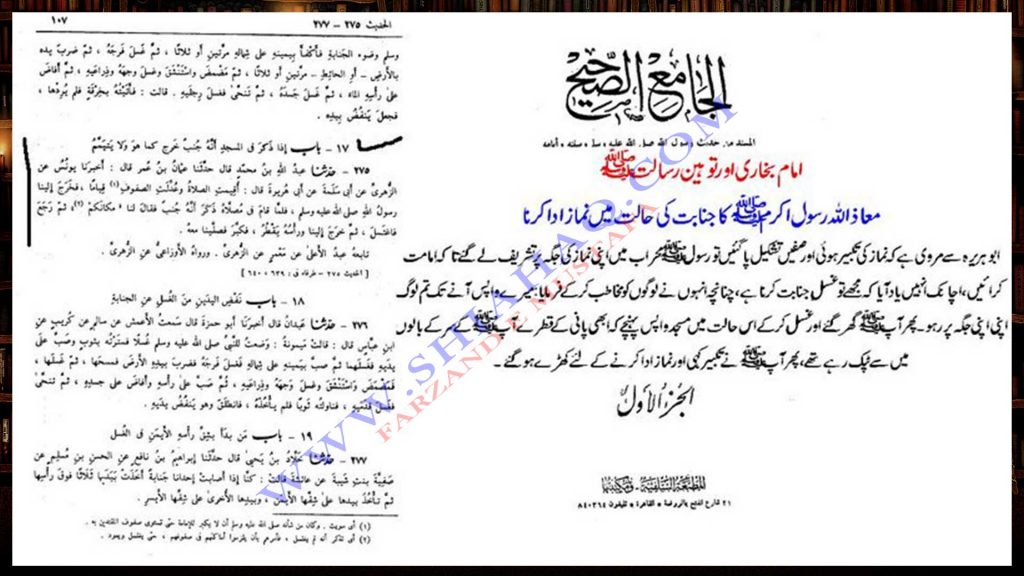 الحديث ٢٧٥ - ٢٧٧
١٠٧
وسلم وضوء الجنابة فأكفأ بيمينه على شماله مرتين أو ثلاثا ، ثم غسل فرجه ، ثم ضرب يده
بالأرض - أو الحائط - مرتين أو ثلاثا ، ثم مضمض واستنشق وغسل وجهه وذراعيه ، ثم أفاض
على رأسه الماء ، ثم غسل جسده ، ثم تنحى فغسل رجليه . قالت : فأتيته بخرقة فلم يردها ،
فجعل ينفض بيده .
١٧ - باب إذا ذكر في المسجد أنه جنب خرج كما هو ولا يتيمم
٢٧٥ - حدثنا عبد الله بن محمد قال حدثنا عثمان بن عمر قال : أخبرنا يونس عن
الزهري عن أبي سلمة عن أبي هريرة قال : أقيمت الصلاة وعدلت الصفوف (١) قياما ، فخرج إلينا
رسول الله صلى الله عليه وسلم ، فلما قام في مصلاه ذكر أنه جنب فقال لنا : مكانكم (٢) ، ثم رجع
فاغتسل ، ثم خرج إلينا ورأسه يقطر ، فكبر فصلينا معه .
تابعه عبد الأعلى عن معمر عن الزهري . ورواه الأوزاعي عن الزهري .
[ الحديث ٢٧٥ - طرفاه في : ٦٣٩ ، ٦٤٠ ]
١٨ - باب نفض اليدين من الغسل عن الجنابة
٢٧٦ - حدثنا عبدان قال أخبرنا أبو حمزة قال سمعت الأعمش عن سالم عن كريب عن
ابن عباس قال : قالت ميمونة : وضعت للنبي صلى الله عليه وسلم غسلا فسترته بثوب وصب على
يديه فغسلهما ثم صب بيمينه على شماله فغسل فرجه فضرب بيده الأرض فمسحها ، ثم غسلها ،
فمضمض واستنشق وغسل وجهه وذراعيه ، ثم صب على رأسه وأفاض على جسده ، ثم تنحى
فغسل قدميه ، فناولته ثوبا فلم يأخذه ، فانطلق وهو ينفض يديه .
١٩ - باب من بدأ بشق رأسه الأيمن في الغسل
٢٧٧ - حدثنا خلاد بن يحيى قال حدثنا إبراهيم بن نافع عن الحسن بن مسلم عن
صفية بنت شيبة عن عائشة قالت : كنا إذا أصابت إحدانا جنابة أخذت بيديها ثلاثا فوق رأسها
ثم تأخذ بيدها على شقها الأيمن ، وبيدها الأخرى على شقها الأيسر .
(١) أي سويت . وكان من شأنه صلى الله عليه وسلم أن لا يكبر للإمامة حتى تستوي صفوف المقتدين به .
(٢) أي تذكر أنه لم يغتسل ، فأمرهم بأن يلزموا أماكنهم في صفوفهم ، حتى يغتسل ويعود .
الجامع الصحيح
المسند من حديث رسول الله صلى الله عليه وسلم وسننه وأيامه
امام بخاری اور توہین رسالت ﷺ
معاذ اللہ رسول اکرم ﷺ کا جنابت کی حالت میں نماز ادا کرنا
ابو ہریرہ سے مروی ہے کہ نماز کی تکبیر ہوئی اور صفیں تشکیل پا گئیں تو رسول ﷺ محراب میں اپنی نماز کی جگہ پر تشریف لے گئے تا کہ امامت
کرائیں، اچانک انہیں یاد آیا کہ مجھے تو غسل جنابت کرنا ہے، چنانچہ انہوں نے لوگوں کو مخاطب کر کے فرمایا: میرے واپس آنے تک تم لوگ
اپنی اپنی جگہ پر رہو۔ پھر آپ ﷺ گھر گئے اور غسل کر کے اس حالت میں مسجد واپس پہنچے کہ ابھی پانی کے قطرے آپ ﷺ کے سر کے بالوں
میں سے ٹپک رہے تھے، پھر آپ ﷺ نے تکبیر کہی اور نماز ادا کرنے کے لئے کھڑے ہو گئے۔
الجزء الأول
المطبعة السلفية - ومكتبتها
٢١ شارع الفتح بالروضة * القاهرة * تليفون ٨٤٠٢٦٤
WWW.SHIAHAQ.COM
FARZAND E MUSTAFA